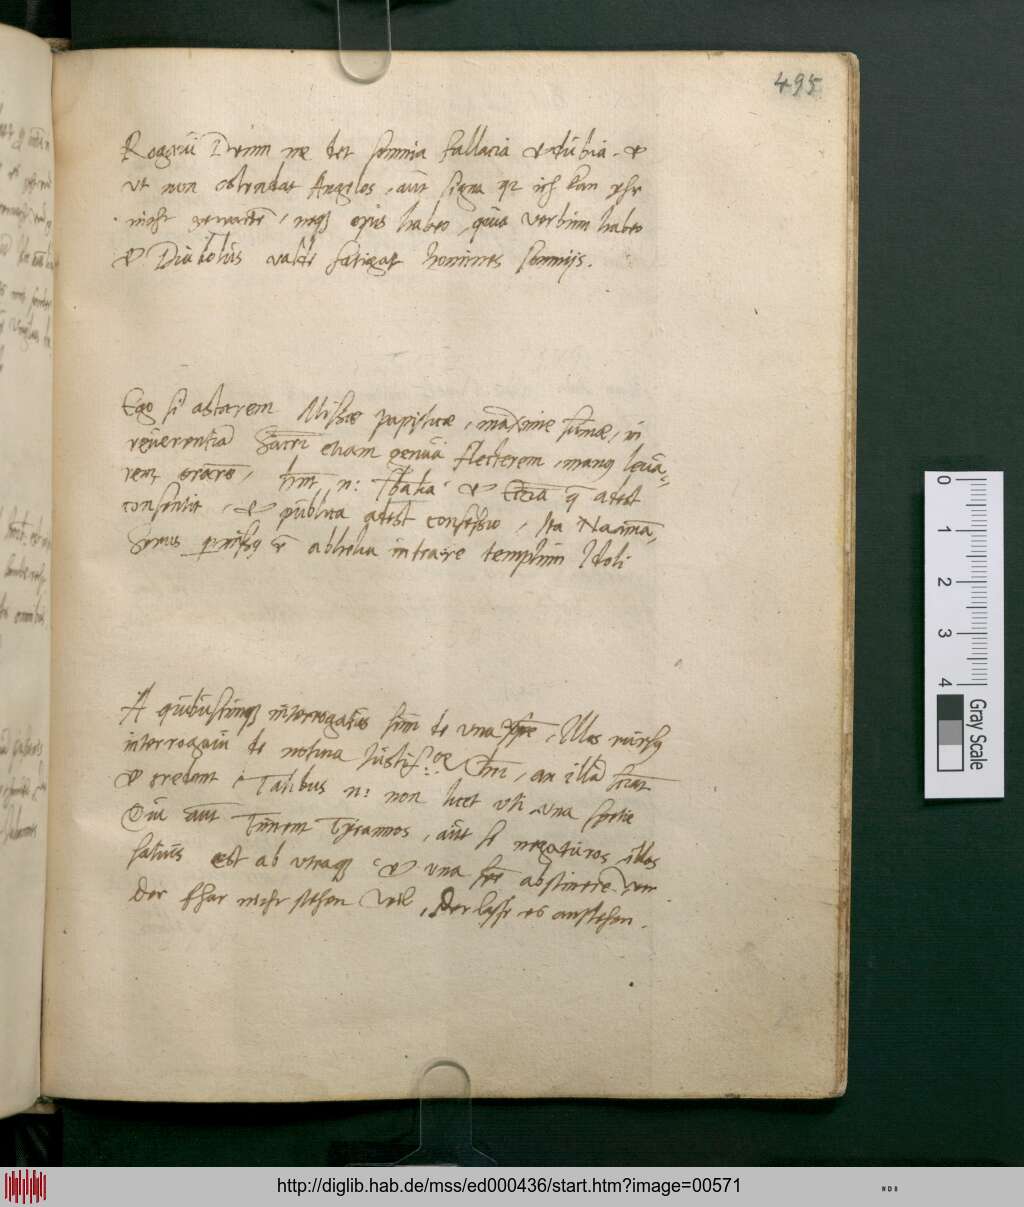 495
Rogavi Deum ne det somnia fallacia et dubia. et
ut non ostendat Angelos, aut signa qz ich kan yhr
nicht gewarten, neqz opus habeo, quia verbum habeo
et Diabolus valde fatigat homines somnijs.
Ego si astarem Missae papisticae, maxime sum̄ae, in
reverentiā Sacr̄i etiam genua flecterem, manqz leva-
rem orare, n: et adest
consentit, et publica adest confessio, Ita Naamā
Syrus permissus ē ab Helia intrare templum Idoli
A quibuscunqz interrogatus sum de una spē, Illos rursqz
interrogavi de an illā sciāt
et credant, Talibus n: non licet uti una specie
Qui aut timent Tyrannos, aut se negaturos illos
satius est ab utraqz et una spē abstinere
Der fhar nicht stehen wil, Der lasse es anstehen.
0 1 2 3 4
Gray Scale
http://diglib.hab.de/mss/ed000436/start.htm?image=00571